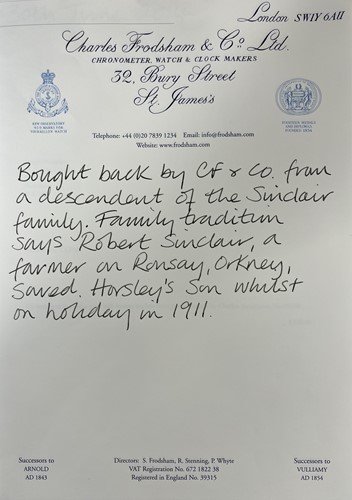 London SW1Y 6AH
Charles Frodsham & Co. Ltd.
CHRONOMETER, WATCH & CLOCK MAKERS
32, Bury Street
St. James's
Telephone: +44 (0)20 7839 1234 Email: info@frodsham.com
Website: www.frodsham.com
Bought back by CF & Co. from
a descendent of the Sinclair
family. Family tradition
says Robert Sinclair, a
farmer on Ronsay, Orkney,
saved Horsley's son whilst
on holiday in 1911.
Successors to
ARNOLD
AD 1843
Directors: S. Frodsham, R. Stenning, P. Whyte
VAT Registration No. 672 1822 38
Registered in England No. 39315
Successors to
VULLIAMY
AD 1854